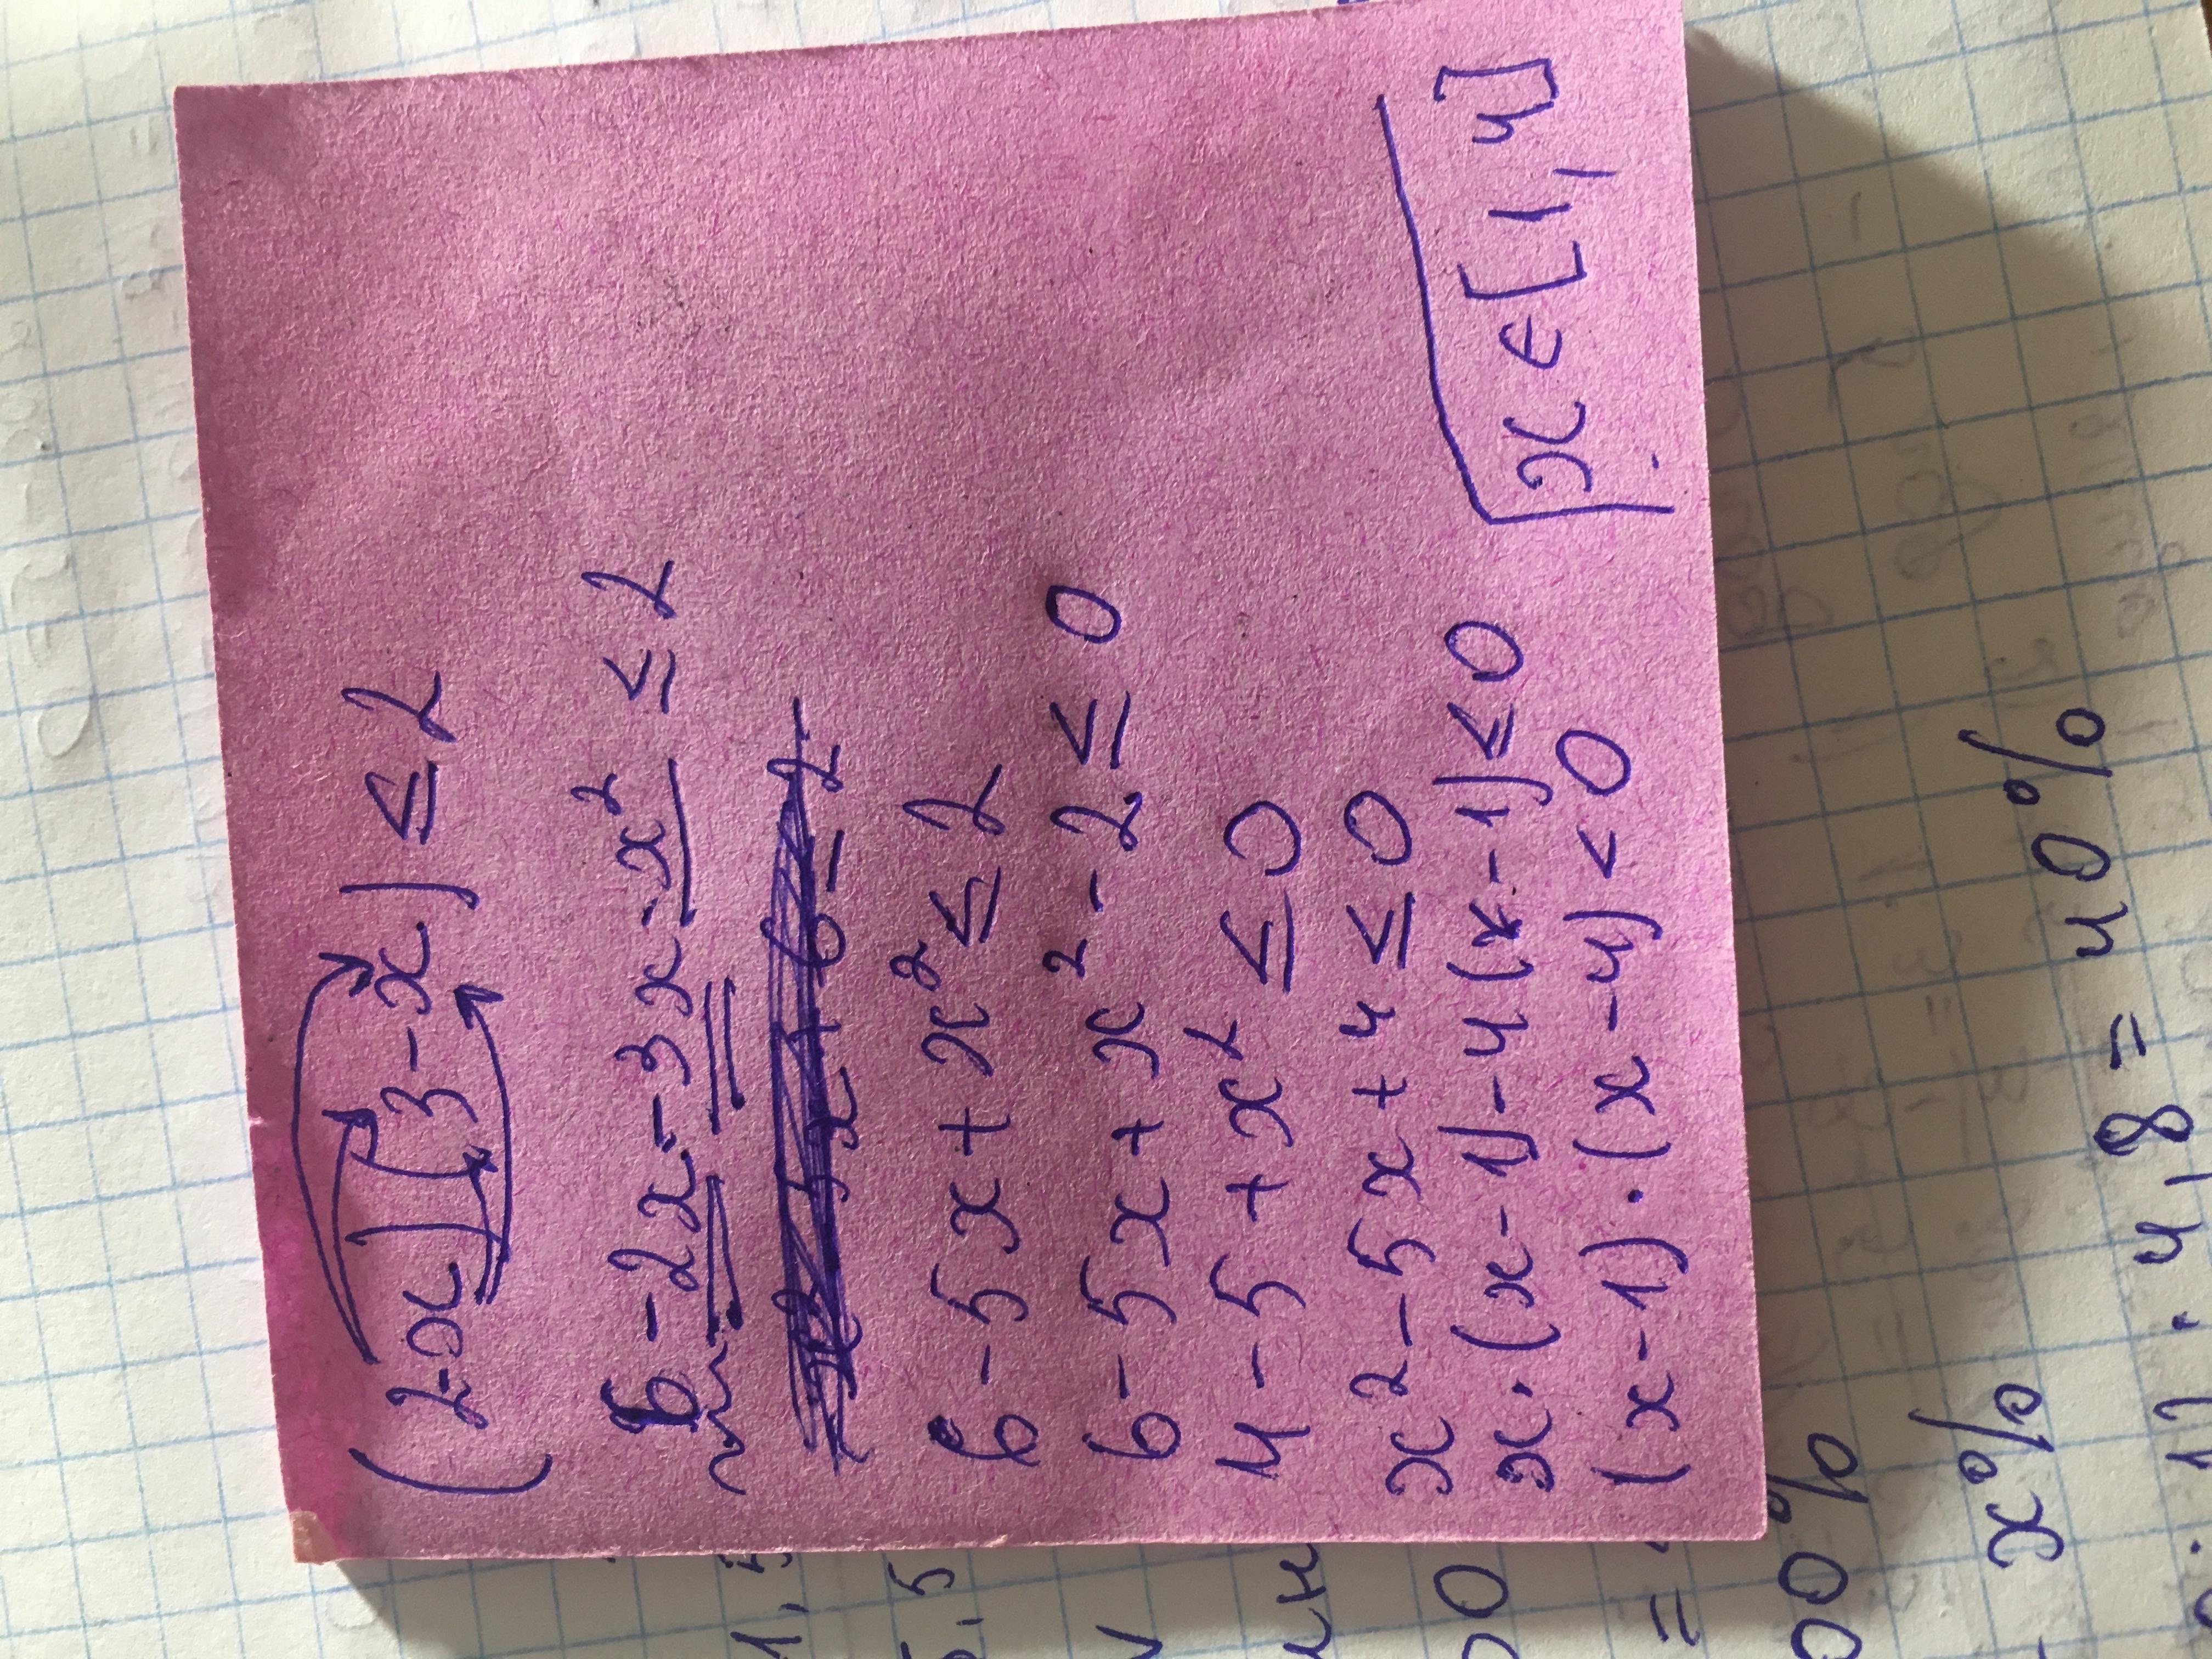 (2-x)(3-x) ≤ 2
6-2x-3x-x² ≤ 2
6-5x+x² ≤ 2
6-5x+x²-2 ≤ 0
4-5+x² ≤ 0
x²-5x+4 ≤ 0
x·(x-1)-4(x-1) ≤ 0
(x-1)·(x-4) < 0
x ∈ [1,4]
· 4,8 = 40%
x%